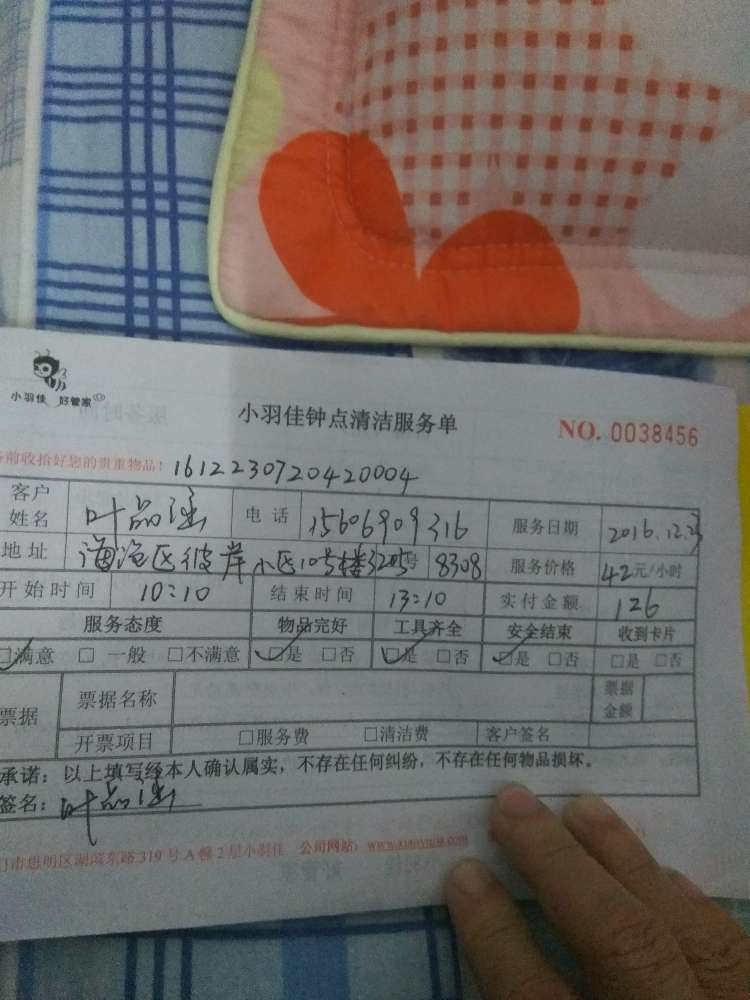 小羽佳 好管家
小羽佳钟点清洁服务单
NO. 0038456
前收拾好您的贵重物品! 1612230720420004
客户姓名 叶品涵 电话 15606909316 服务日期 2016.12.23
地址 海沧区彼岸小区10号楼3205号 8308 服务价格 42元/小时
开始时间 10:10 结束时间 13:10 实付金额 126
服务态度 物品完好 工具齐全 安全结束 收到卡片
☑满意 □一般 □不满意 ☑是 □否 ☑是 □否 ☑是 □否 □是 □否
票据 票据名称 票据金额
开票项目 □服务费 □清洁费 客户签名
承诺：以上填写经本人确认属实，不存在任何纠纷，不存在任何物品损坏。
签名：叶品涵
门市思明区湖滨东路319号A幢2层小羽佳 公司网站：